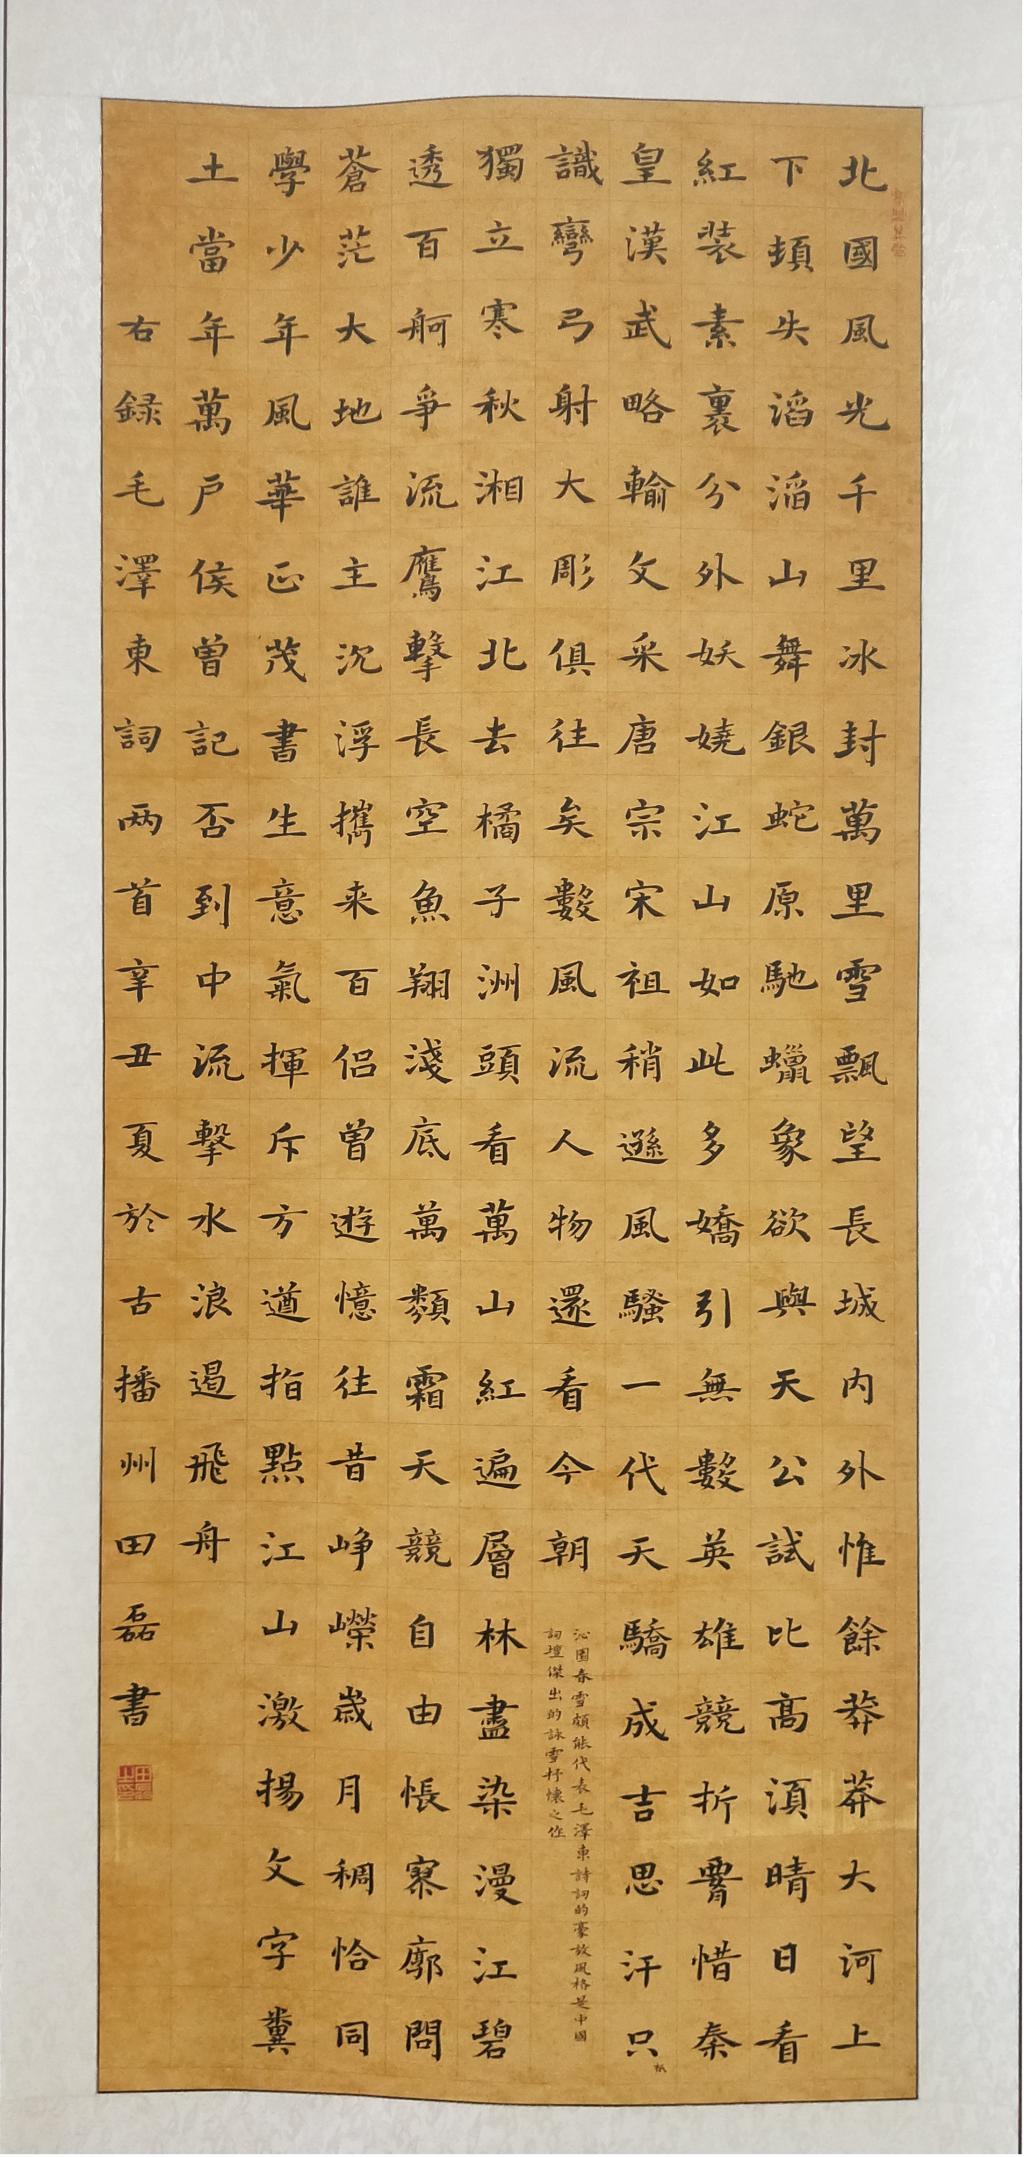 北國風光千里冰封萬里雪飄望長城內外惟餘莽莽大河上
下頓失滔滔山舞銀蛇原馳蠟象欲與天公試比高須晴日看
紅裝素裹分外妖嬈江山如此多嬌引無數英雄競折腰惜秦
皇漢武略輸文采唐宗宋祖稍遜風騷一代天驕成吉思汗只
識彎弓射大彫俱往矣數風流人物還看今朝
沁園春雪頗能代表毛澤東詩詞的豪放風格是中國
詞壇傑出的詠雪抒懷之作
獨立寒秋湘江北去橘子洲頭看萬山紅遍層林盡染漫江碧
透百舸爭流鷹擊長空魚翔淺底萬類霜天競自由悵寥廓問
蒼茫大地誰主沉浮攜來百侶曾遊憶往昔崢嶸歲月稠恰同
學少年風華正茂書生意氣揮斥方遒指點江山激揚文字糞
土當年萬戶侯曾記否到中流擊水浪遏飛舟
右録毛澤東詞兩首辛丑夏於古播州田磊書